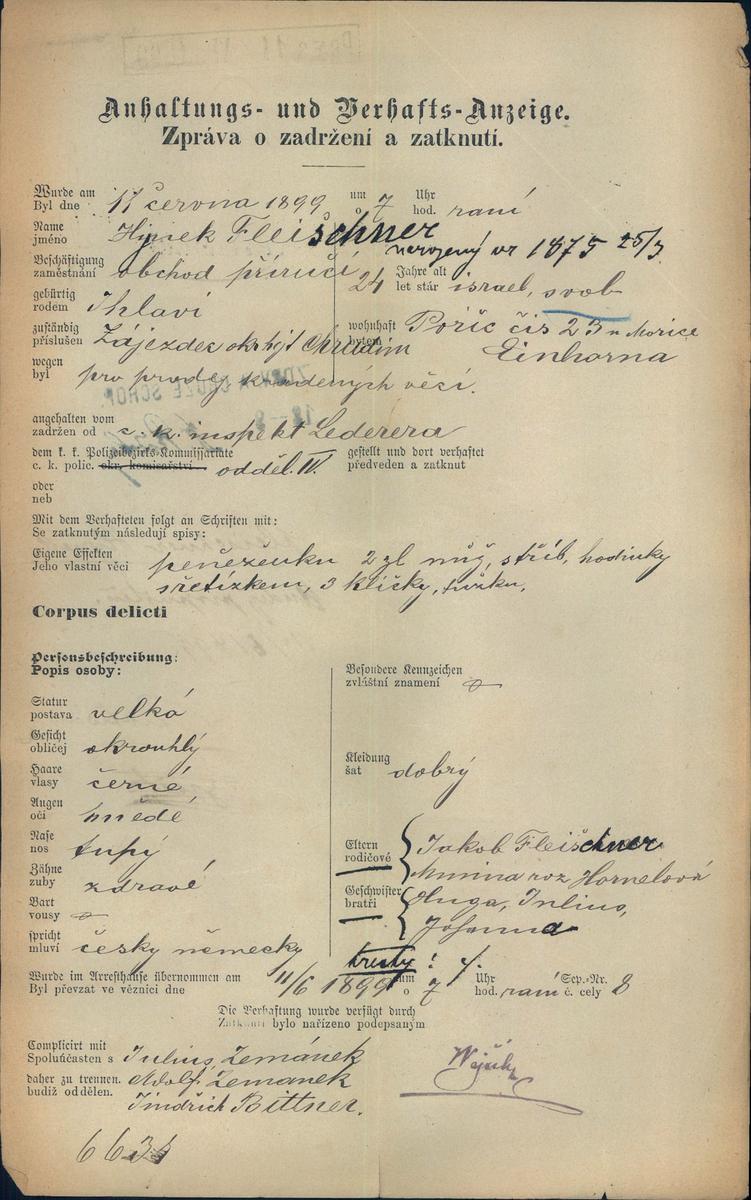 Anhaltungs- und Verhafts-Anzeige.
Zpráva o zadržení a zatknutí.
Wurde am um Uhr
Byl dne 11 června 1899 o 7 hod. raní
Name
jméno Hynek Fleischner
narozený vr 1875 25/3
Beschäftigung Jahre alt
zaměstnání obchod příručí 24 let stár israel, svob
gebürtig
rodem Ihlaví
zuständig wohnhaft
příslušen Zájezdec okr hjt Chrudim bytem Poříč čis 23 u Morice
Einhorna
wegen
byl pro prodej kradených věcí.
angehalten vom
zadržen od c. k. inspekt Lederera
dem k. k. Polizeibezirks-Kommissariate gestellt und dort verhaftet
c. k. polic. okr. komisařství odděl. IV. předveden a zatknut
oder
neb
Mit dem Verhafteten folgt an Schriften mit:
Se zatknutým následují spisy:
Eigene Effekten
Jeho vlastní věci peněženku 2 zl nůž, stříb, hodinky
s řetízkem, 3 klíčky, tužku,
Corpus delicti
Personsbeschreibung:
Popis osoby:
Besondere Kennzeichen
zvláštní znamení
Statur
postava velká
Gesicht
obličej okrouhlý
Haare
vlasy černé
Kleidung
šat dobrý
Augen
oči hnědé
Nase
nos tupý
Eltern
rodičové Jakob Fleischner
Minina roz Hornelová
Zähne
zuby zdravé
Geschwister
bratři Huga, Julius,
Johanna
Bart
vousy
spricht
mluví česky německy
tresty:
Wurde im Arresthause übernommen am um Uhr Sep.-Nr.
Byl převzat ve věznici dne 11/6 1899 o 7 hod. raní č. cely 8
Die Verhaftung wurde verfügt durch
Zatknutí bylo nařízeno podepsaným
Complicirt mit
Spoluúčasten s Julius Zemánek
daher zu trennen. Adolf Zemanek
budiž oddělen. Jindřich Bittner.